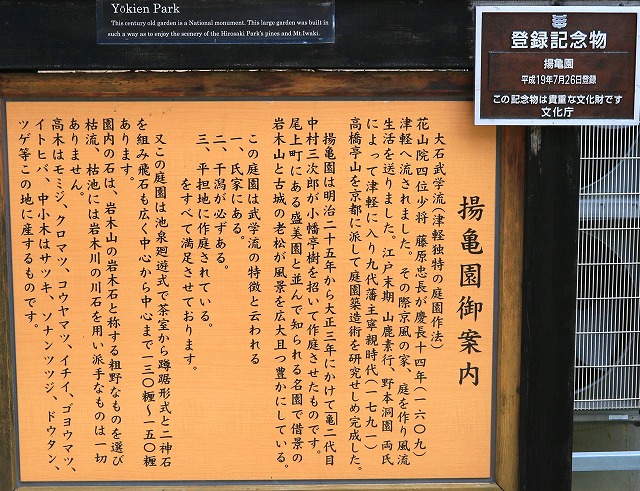 Yōkien Park
This century old garden is a National monument. This large garden was built in
such a way as to enjoy the scenery of the Hirosaki Park's pines and Mt.Iwaki.
登録記念物
揚亀園
平成19年7月26日登録
この記念物は貴重な文化財です
文化庁
揚亀園御案内
大石武学流(津軽独特の庭園作法)
花山院四位少将 藤原忠長が慶長十四年(一六〇九)
津軽へ流されました。その際京風の家、庭を作り風流
生活を送りました。江戸末期 山鹿素行、野本洞園 両氏
によって津軽に入り九代藩主寧親時代(一七九一)
高橋亭山を京都に派して庭園築造術を研究せしめ完成した。
揚亀園は明治二十五年から大正三年にかけて亀二代目
中村三次郎が小幡亭樹を招いて作庭させたものです。
尾上町にある盛美園と並んで知られる名園で借景の
岩木山と古城の老松が風景を広大且つ豊かにしている。
この庭園は武学流の特徴と云われる
一、氏家にある。
二、干潟が必ずある。
三、平担地に作庭されている。
をすべて満足させております。
又この庭園は池泉廻遊式で茶室から蹲踞形式と二神石
を組み飛石も広く中心から中心まで一三〇糎〜一五〇糎
あります。
園内の石は、岩木山の岩木石と称する粗野なものを選び
枯流、枯池には岩木川の川石を用い派手なものは一切
ありません。
高木はモミジ、クロマツ、コウヤマツ、イチイ、ゴヨウマツ、
イトヒバ、中小木はサツキ、ソナンツツジ、ドウタン、
ツゲ等この地に座するものです。